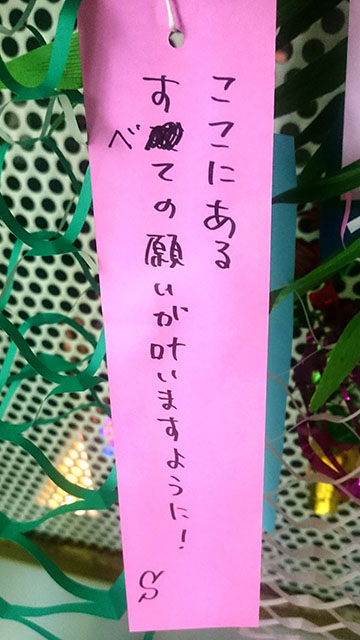 ここにある
すべての願いが叶いますように!
S